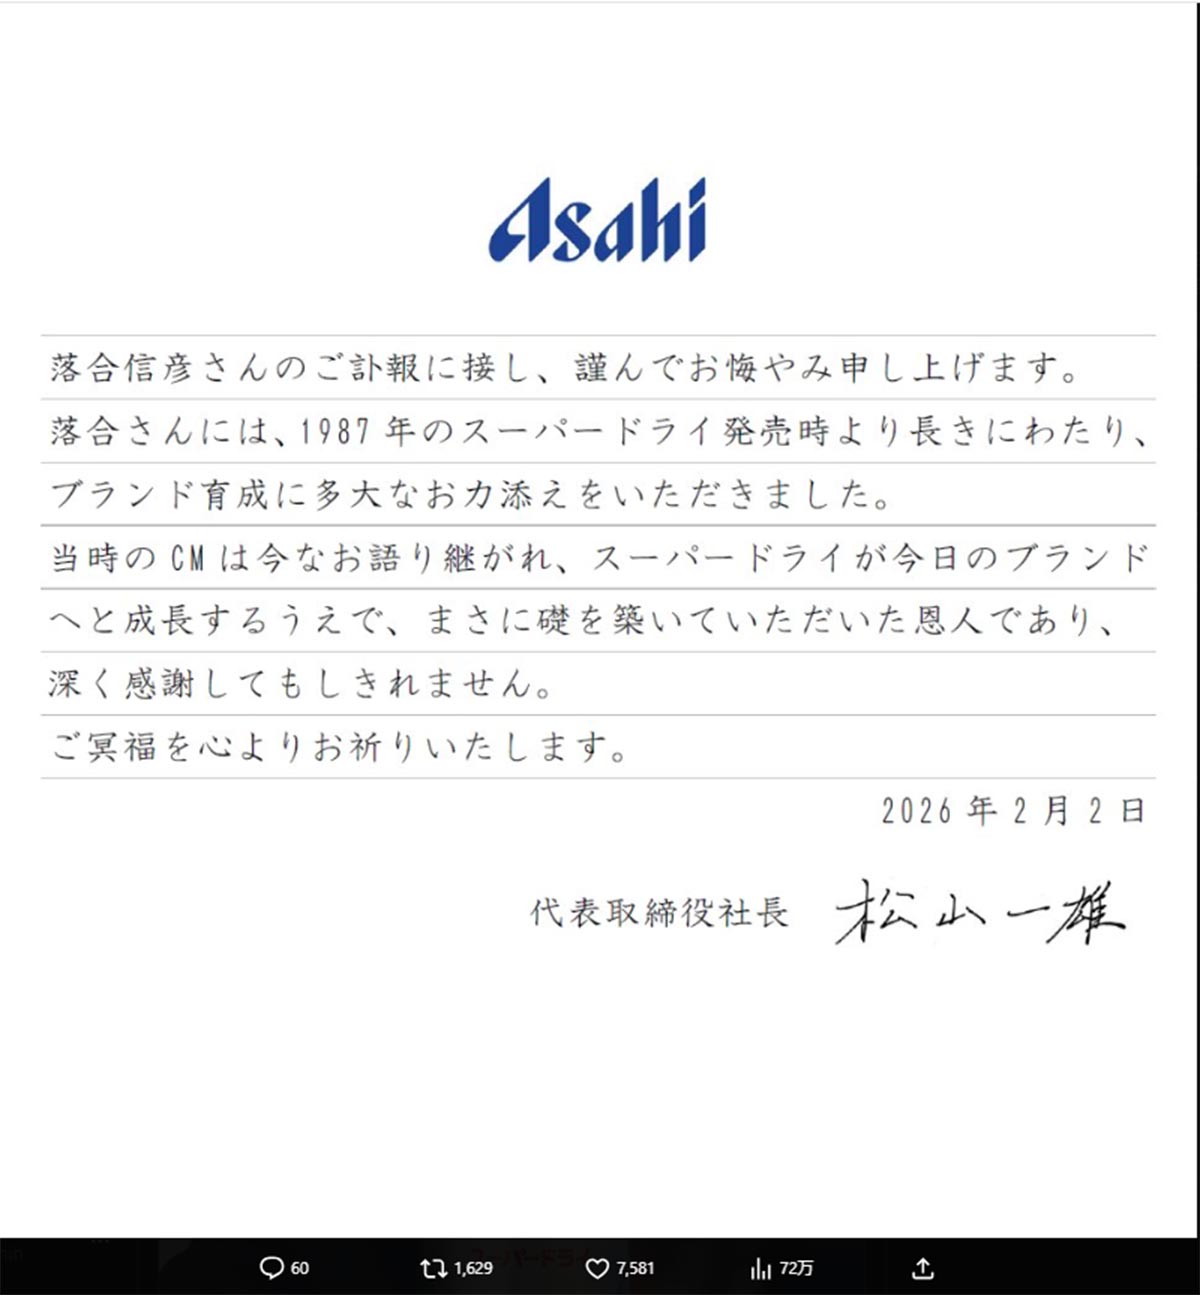 Asahi
落合信彦さんのご訃報に接し、謹んでお悔やみ申し上げます。
落合さんには、1987年のスーパードライ発売時より長きにわたり、
ブランド育成に多大なお力添えをいただきました。
当時のCMは今なお語り継がれ、スーパードライが今日のブランド
へと成長するうえで、まさに礎を築いていただいた恩人であり、
深く感謝してもしきれません。
ご冥福を心よりお祈りいたします。
2026年2月2日
代表取締役社長 松山一雄
スーパードライ
60 1,629 7,581 72万